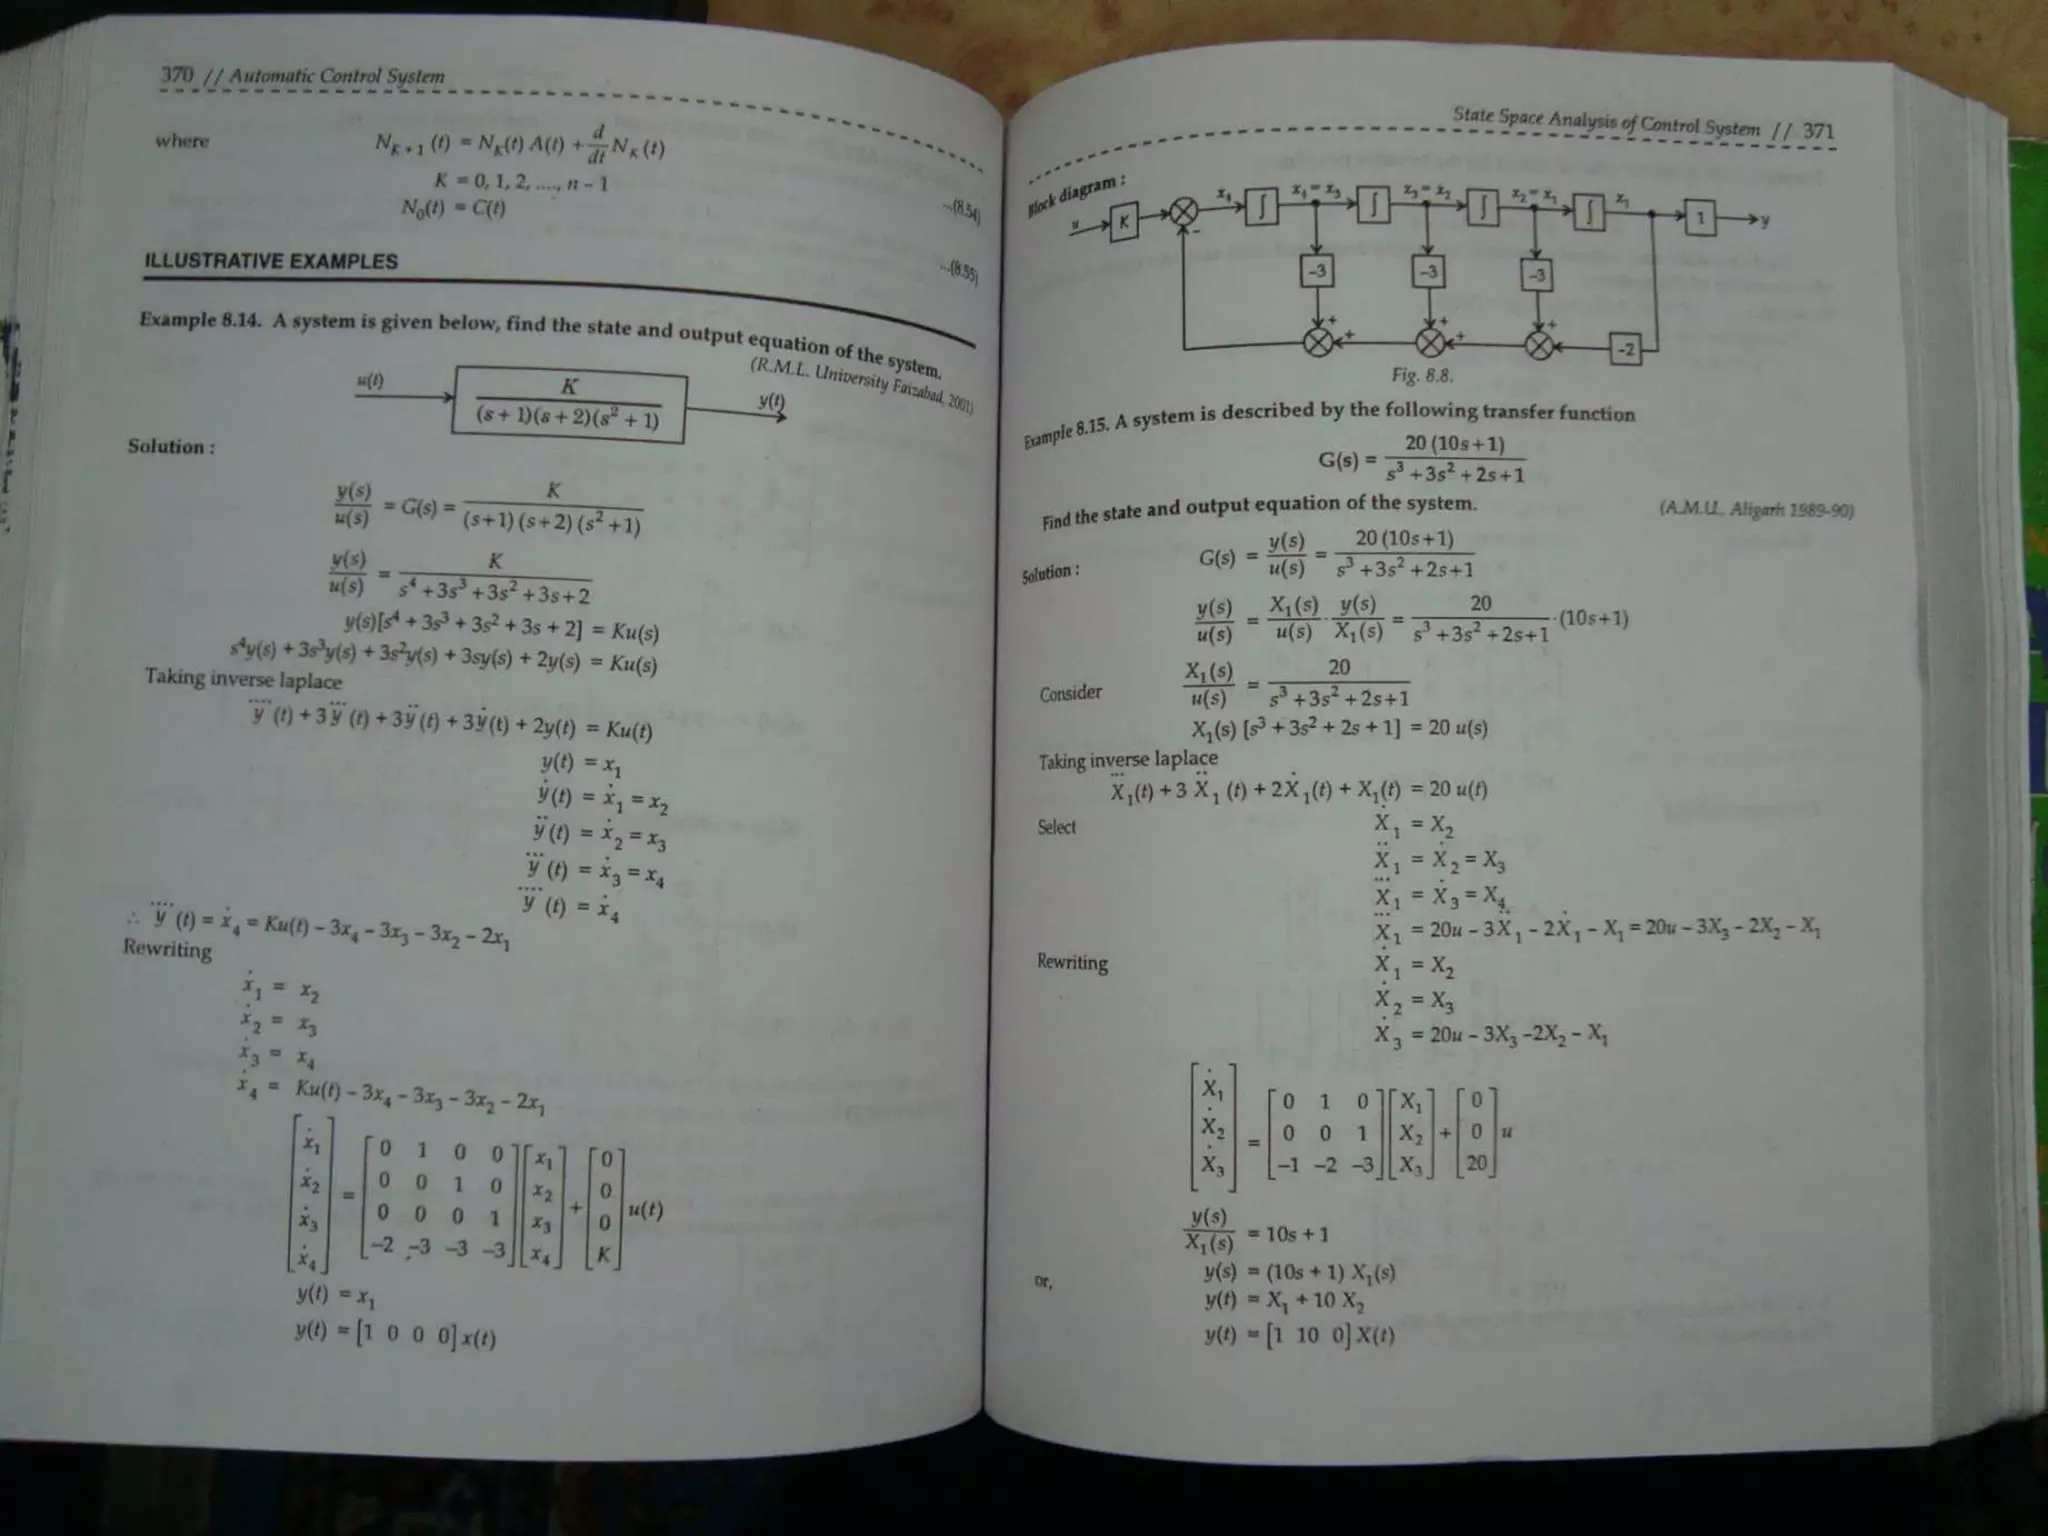 370 // Automatic Control System
where N_{K+1} (t) = N_K(t) A(t) + d/dt N_K (t)
K = 0, 1, 2, ...., n – 1 ...(8.54)
N_0(t) = C(t) ...(8.55)
ILLUSTRATIVE EXAMPLES
Example 8.14. A system is given below, find the state and output equation of the system.
(R.M.L. University Faizabad, 2001)
u(t) K / (s + 1)(s + 2)(s² + 1) y(t)
Solution :
y(s)/u(s) = G(s) = K / (s+1) (s+2) (s² +1)
y(s)/u(s) = K / s⁴ +3s³ +3s² +3s+2
y(s)[s⁴ + 3s³ + 3s² + 3s + 2] = Ku(s)
s⁴y(s) + 3s³y(s) + 3s²y(s) + 3sy(s) + 2y(s) = Ku(s)
Taking inverse laplace
y⃜ (t) + 3 y⃛ (t) + 3ÿ (t) + 3ẏ(t) + 2y(t) = Ku(t)
y(t) = x₁
ẏ(t) = ẋ₁ = x₂
ÿ (t) = ẋ₂ = x₃
y⃛ (t) = ẋ₃ = x₄
y⃜ (t) = ẋ₄
∴ y⃜ (t) = ẋ₄ = Ku(t) – 3x₄ – 3x₃ – 3x₂ – 2x₁
Rewriting
ẋ₁ = x₂
ẋ₂ = x₃
ẋ₃ = x₄
ẋ₄ = Ku(t) – 3x₄ – 3x₃ – 3x₂ – 2x₁
[ẋ₁] [0 1 0 0] [x₁] [0]
[ẋ₂] [0 0 1 0] [x₂] [0]
[ẋ₃] = [0 0 0 1] [x₃] + [0] u(t)
[ẋ₄] [–2 –3 –3 –3] [x₄] [K]
y(t) = x₁
y(t) = [1 0 0 0] x(t)
State Space Analysis of Control System // 371
Block diagram :
u K – ẋ₄ ∫ x₄ = ẋ₃ ∫ x₃ = ẋ₂ ∫ x₂ = ẋ₁ ∫ x₁ 1 y
–3 –3 –3
+ + + + + –2
Fig. 8.8.
Example 8.15. A system is described by the following transfer function
G(s) = 20 (10s+1) / s³ +3s² +2s+1
Find the state and output equation of the system. (A.M.U. Aligarh 1989-90)
Solution : G(s) = y(s)/u(s) = 20 (10s+1) / s³ +3s² +2s+1
y(s)/u(s) = X₁(s)/u(s) · y(s)/X₁(s) = 20 / s³ +3s² +2s+1 ·(10s+1)
Consider X₁(s)/u(s) = 20 / s³ +3s² +2s+1
X₁(s) [s³ + 3s² + 2s + 1] = 20 u(s)
Taking inverse laplace
X⃛₁(t) + 3 Ẍ₁ (t) + 2Ẋ₁(t) + X₁(t) = 20 u(t)
Select Ẋ₁ = X₂
Ẍ₁ = Ẋ₂ = X₃
X⃛₁ = Ẋ₃ = X₄
X⃛₁ = 20u – 3Ẍ₁ – 2Ẋ₁ – X₁ = 20u – 3X₃ – 2X₂ – X₁
Rewriting Ẋ₁ = X₂
Ẋ₂ = X₃
Ẋ₃ = 20u – 3X₃ –2X₂ – X₁
[Ẋ₁] [0 1 0] [X₁] [0]
[Ẋ₂] = [0 0 1] [X₂] + [0] u
[Ẋ₃] [–1 –2 –3] [X₃] [20]
y(s)/X₁(s) = 10s + 1
or, y(s) = (10s + 1) X₁(s)
y(t) = X₁ + 10 X₂
y(t) = [1 10 0] X(t)